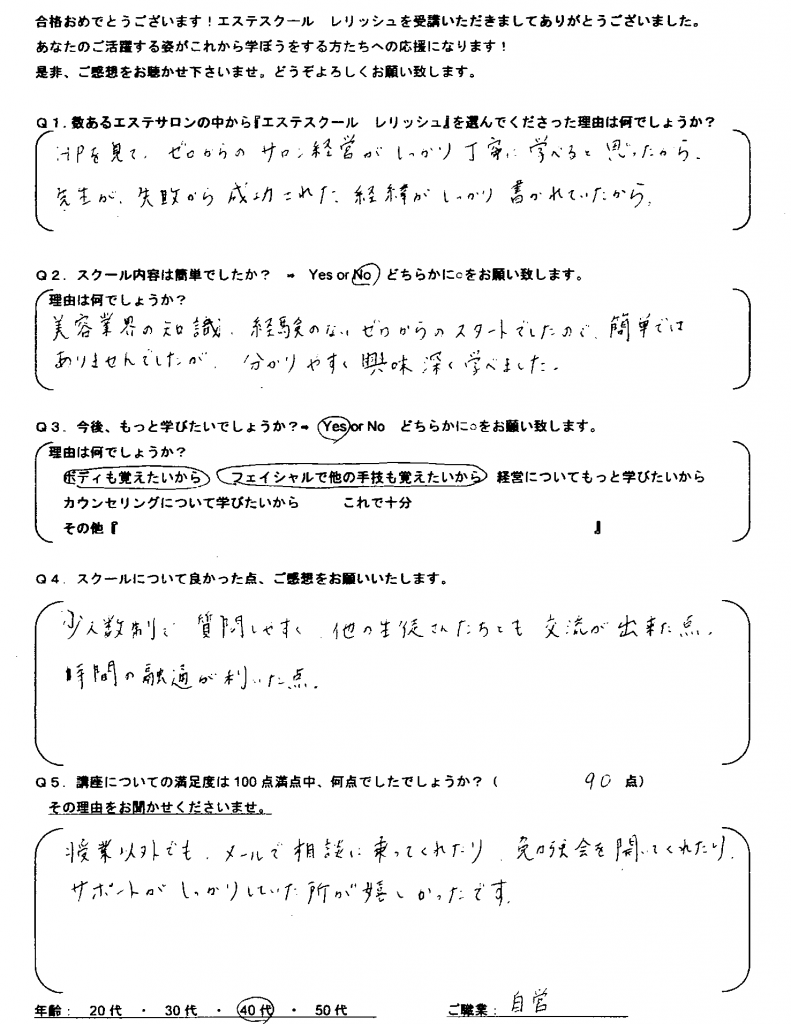 合格おめでとうございます！エステスクール　レリッシュを受講いただきましてありがとうございました。
あなたのご活躍する姿がこれから学ぼうをする方たちへの応援になります！
是非、ご感想をお聴かせ下さいませ。どうぞよろしくお願い致します。
Q１．数あるエステサロンの中から『エステスクール　レリッシュ』を選んでくださった理由は何でしょうか？
HPを見て、ゼロからのサロン経営がしっかり丁寧に学べると思ったから。
先生が、失敗から成功された経緯がしっかり書かれていたから。
Q２．スクール内容は簡単でしたか？　➡　Yes or No　どちらかに○をお願い致します。
理由は何でしょうか？
美容業界の知識、経験のないゼロからのスタートでしたので、簡単では
ありませんでしたが、分かりやすく興味深く学べました。
Q３．今後、もっと学びたいでしょうか？➡　Yes or No　どちらかに○をお願い致します。
理由は何でしょうか？
ボディも覚えたいから　フェイシャルで他の手技も覚えたいから　経営についてもっと学びたいから
カウンセリングについて学びたいから　　これで十分
その他『　　　　　　　　　　　　　　　　』
Q４．スクールについて良かった点、ご感想をお願いいたします。
少人数制で質問しやすく、他の生徒さんたちとも交流が出来た点。
時間の融通が利いた点。
Q５．講座についての満足度は100点満点中、何点でしたでしょうか？（　90　点）
その理由をお聞かせくださいませ。
授業以外でも、メールで相談に乗ってくれたり、勉強会を開いてくれたり、
サポートがしっかりしていた所が嬉しかったです。
年齢：　20代　・　30代　・　40代　・　50代　　　ご職業：　自営